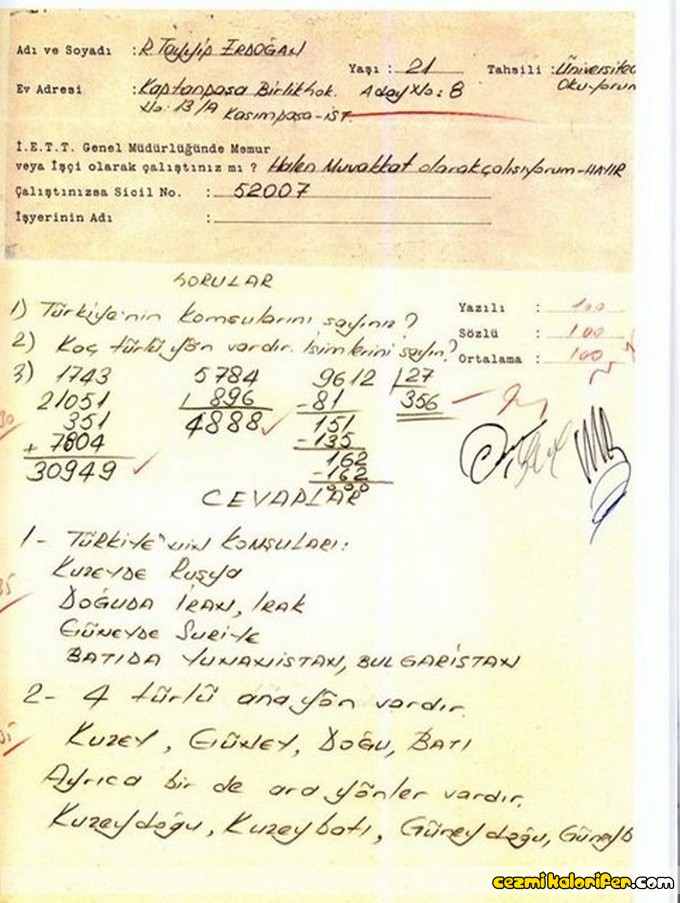 Adı ve Soyadı : R. Tayyip ERDOĞAN
Yaşı : 21 Tahsili : Üniversite
Okuyorum
Ev Adresi : Kaptanpaşa Birlikhok. Aday No: 8
No: 13/A Kasımpaşa-İST.
İ.E.T.T. Genel Müdürlüğünde Memur
veya İşçi olarak çalıştınız mı ? Halen Muvakkat olarak çalışıyorum-HAYIR
Çalıştınızsa Sicil No. : 52007
İşyerinin Adı :
SORULAR
1) Türkiye'nin komşularını sayınız?
2) Kaç türlü yön vardır. İsimlerini sayın?
Yazılı : 100
Sözlü : 100
Ortalama : 100
3) 1743 5784 9612 27
21051 896 -81 356
351 4888 151
+ 7804 -135
30949 162
-162
000
CEVAPLAR
1- TÜRKİYE'NİN KOMŞULARI:
KUZEYDE RUSYA
DOĞUDA İRAN, IRAK
GÜNEYDE SURİYE
BATIDA YUNANİSTAN, BULGARİSTAN
2- 4 türlü ana yön vardır.
KUZEY, GÜNEY, DOĞU, BATI
Ayrıca bir de ara yönler vardır.
Kuzeydoğu, Kuzeybatı, Güneydoğu, Güneyb
cezmikalorifer.com